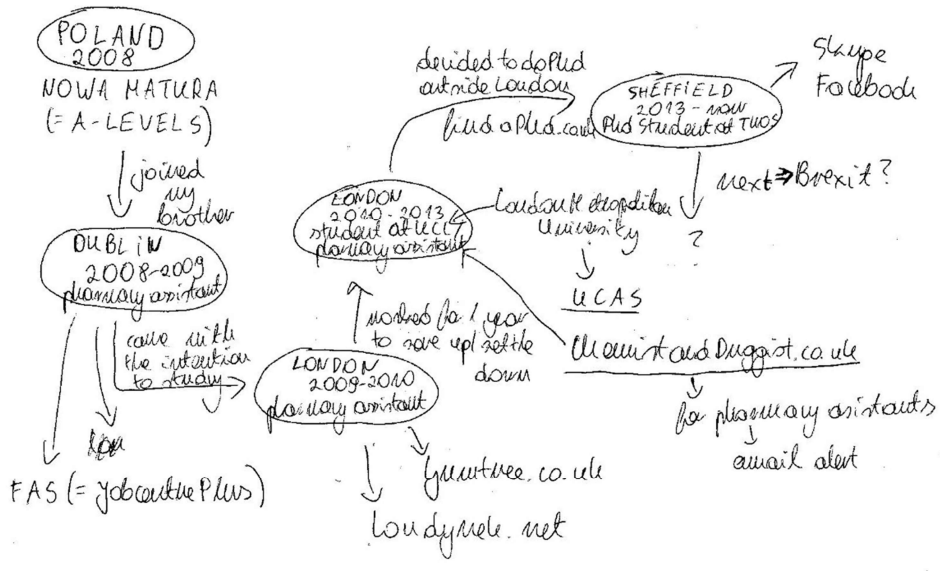 POLAND
2008
NOWA MATURA
(= A-LEVELS)
joined
my
brother
DUBLIN
2008-2009
pharmacy assistant
came with
the intention
to study
FAS (= Jobcentre Plus)
LONDON
2009-2010
pharmacy assistant
Gumtree.co.uk
Londynek.net
worked for 1 year
to save up/settle
down
LONDON
2010-2013
student at
pharmacy assistant
London Metropolitan
University
UCAS
ChemistandDruggist.co.uk
for pharmacy asistants
email alert
decided to do PhD
outside London
findaphd.com
SHEFFIELD
2013-now
PhD Student at TUOS
Skype
Facebook
next ⇒ Brexit?
?